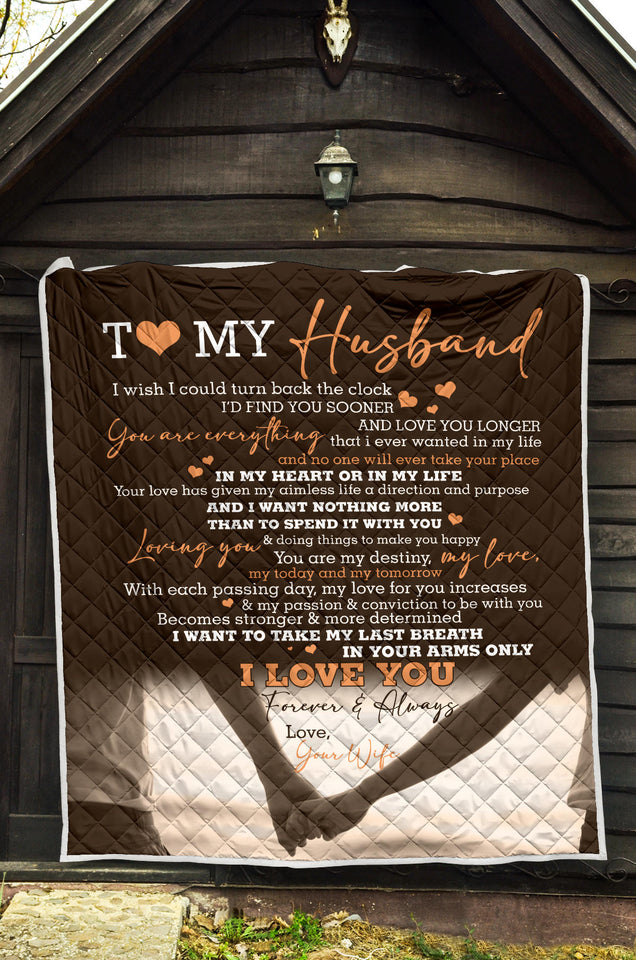 T MY Husband
I wish I could turn back the clock
I'D FIND YOU SOONER
AND LOVE YOU LONGER
You are everything that i ever wanted in my life
and no one will ever take your place
IN MY HEART OR IN MY LIFE
Your love has given my aimless life a direction and purpose
AND I WANT NOTHING MORE
THAN TO SPEND IT WITH YOU
Loving you & doing things to make you happy
You are my destiny, my love,
my today and my tomorrow
With each passing day, my love for you increases
& my passion & conviction to be with you
Becomes stronger & more determined
I WANT TO TAKE MY LAST BREATH
IN YOUR ARMS ONLY
I LOVE YOU
Forever & Always
Love,
Your Wife